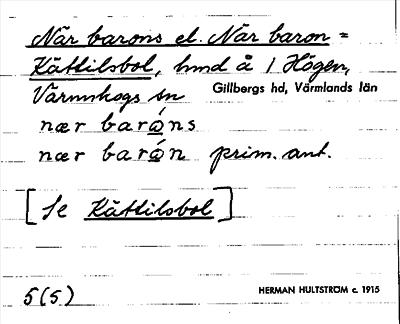 När barons el. När baron =
Kättilsbol, hmd å 1 Högen,
Värmskogs sn Gillbergs hd, Värmlands län
nær barώns
nær barώn prim. ant.
[Se Kättilsbol]
5(5) HERMAN HULTSTRÖM c. 1915